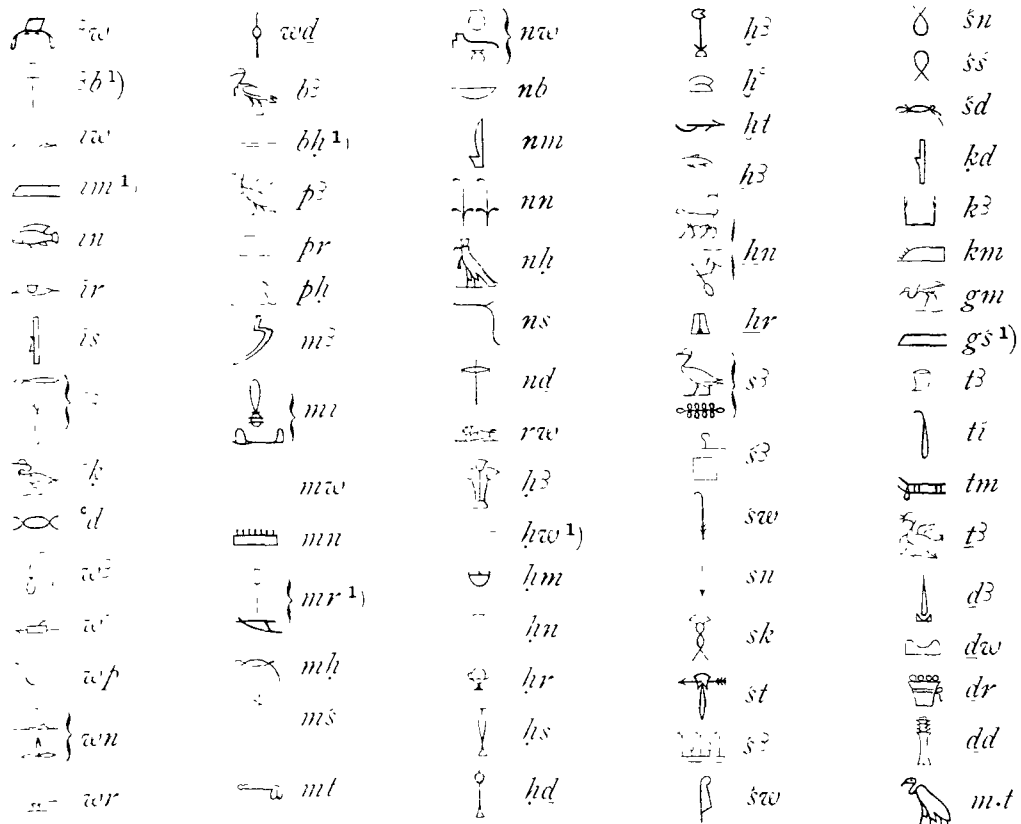 ꜣw
ꜣb¹)
iw
im¹)
in
ir
is
ꜥḳ
ꜥḏ
wꜣ
wꜥ
wp
wn
wr
wḏ
bꜣ
bḥ¹)
pꜣ
pr
pḥ
mꜣ
mi
mw
mn
mr¹)
mḥ
mś
mt
nw
nb
nm
nn
nḥ
ns
nḏ
rw
ḥꜣ
ḥw¹)
ḥm
ḥn
ḥr
ḥs
ḥḏ
ḫꜣ
ḫꜥ
ḫt
ẖꜣ
ẖn
ẖr
sꜣ
śꜣ
św
śn
śk
śt
šꜣ
šw
šn
šś
šd
ḳd
kꜣ
km
gm
gś¹)
tꜣ
ti
tm
ṯꜣ
ḏꜣ
ḏw
ḏr
ḏd
m·t